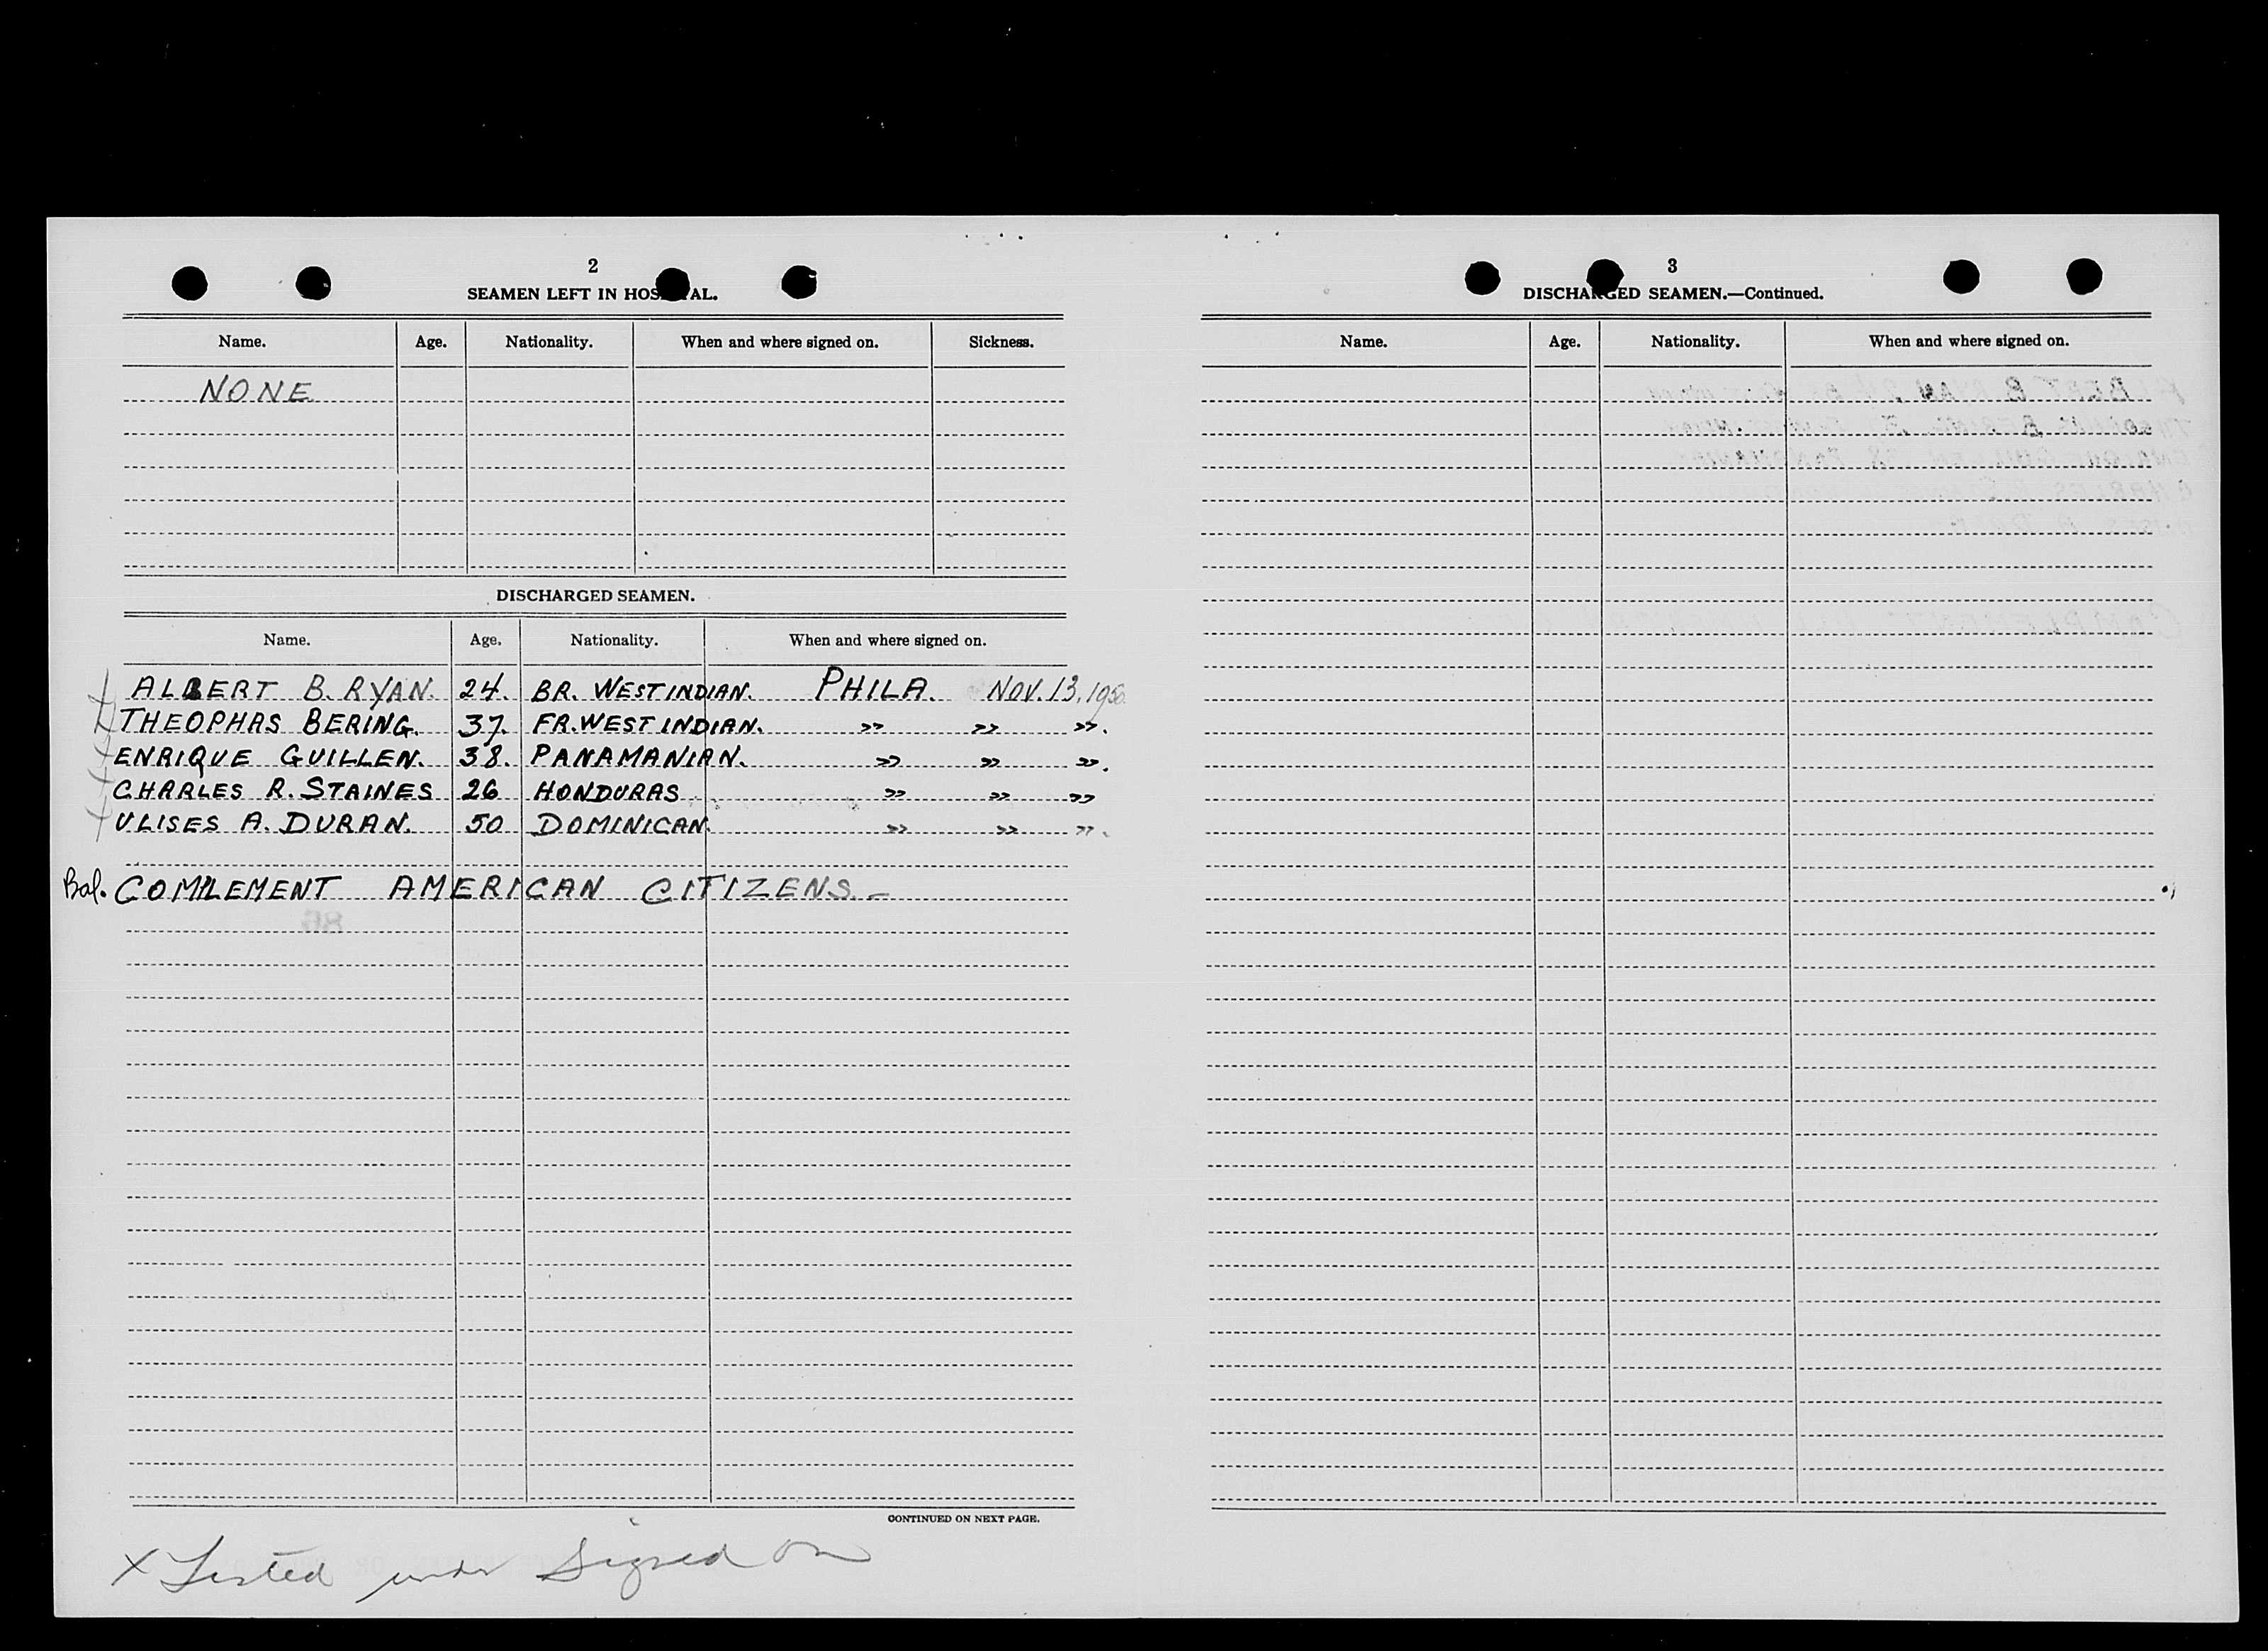 2
SEAMEN LEFT IN HOS AL.
Name. Age. Nationality. When and where signed on. Sickness.
NONE
DISCHARGED SEAMEN.
Name. Age. Nationality. When and where signed on.
ALBERT B. RYAN. 24. BR. WEST INDIAN. PHILA. NOV. 13, 1950
THEOPHAS BERING. 37. FR. WEST INDIAN. " " ".
ENRIQUE GUILLEN. 38. PANAMANIAN. " " ".
CHARLES R. STAINES 26 HONDURAS " " "
ULISES A. DURAN. 50 DOMINICAN. " " ".
Bal. COMPLEMENT AMERICAN CITIZENS. –
CONTINUED ON NEXT PAGE.
x Listed under Signed on
3
DISCHARGED SEAMEN.—Continued.
Name. Age. Nationality. When and where signed on.